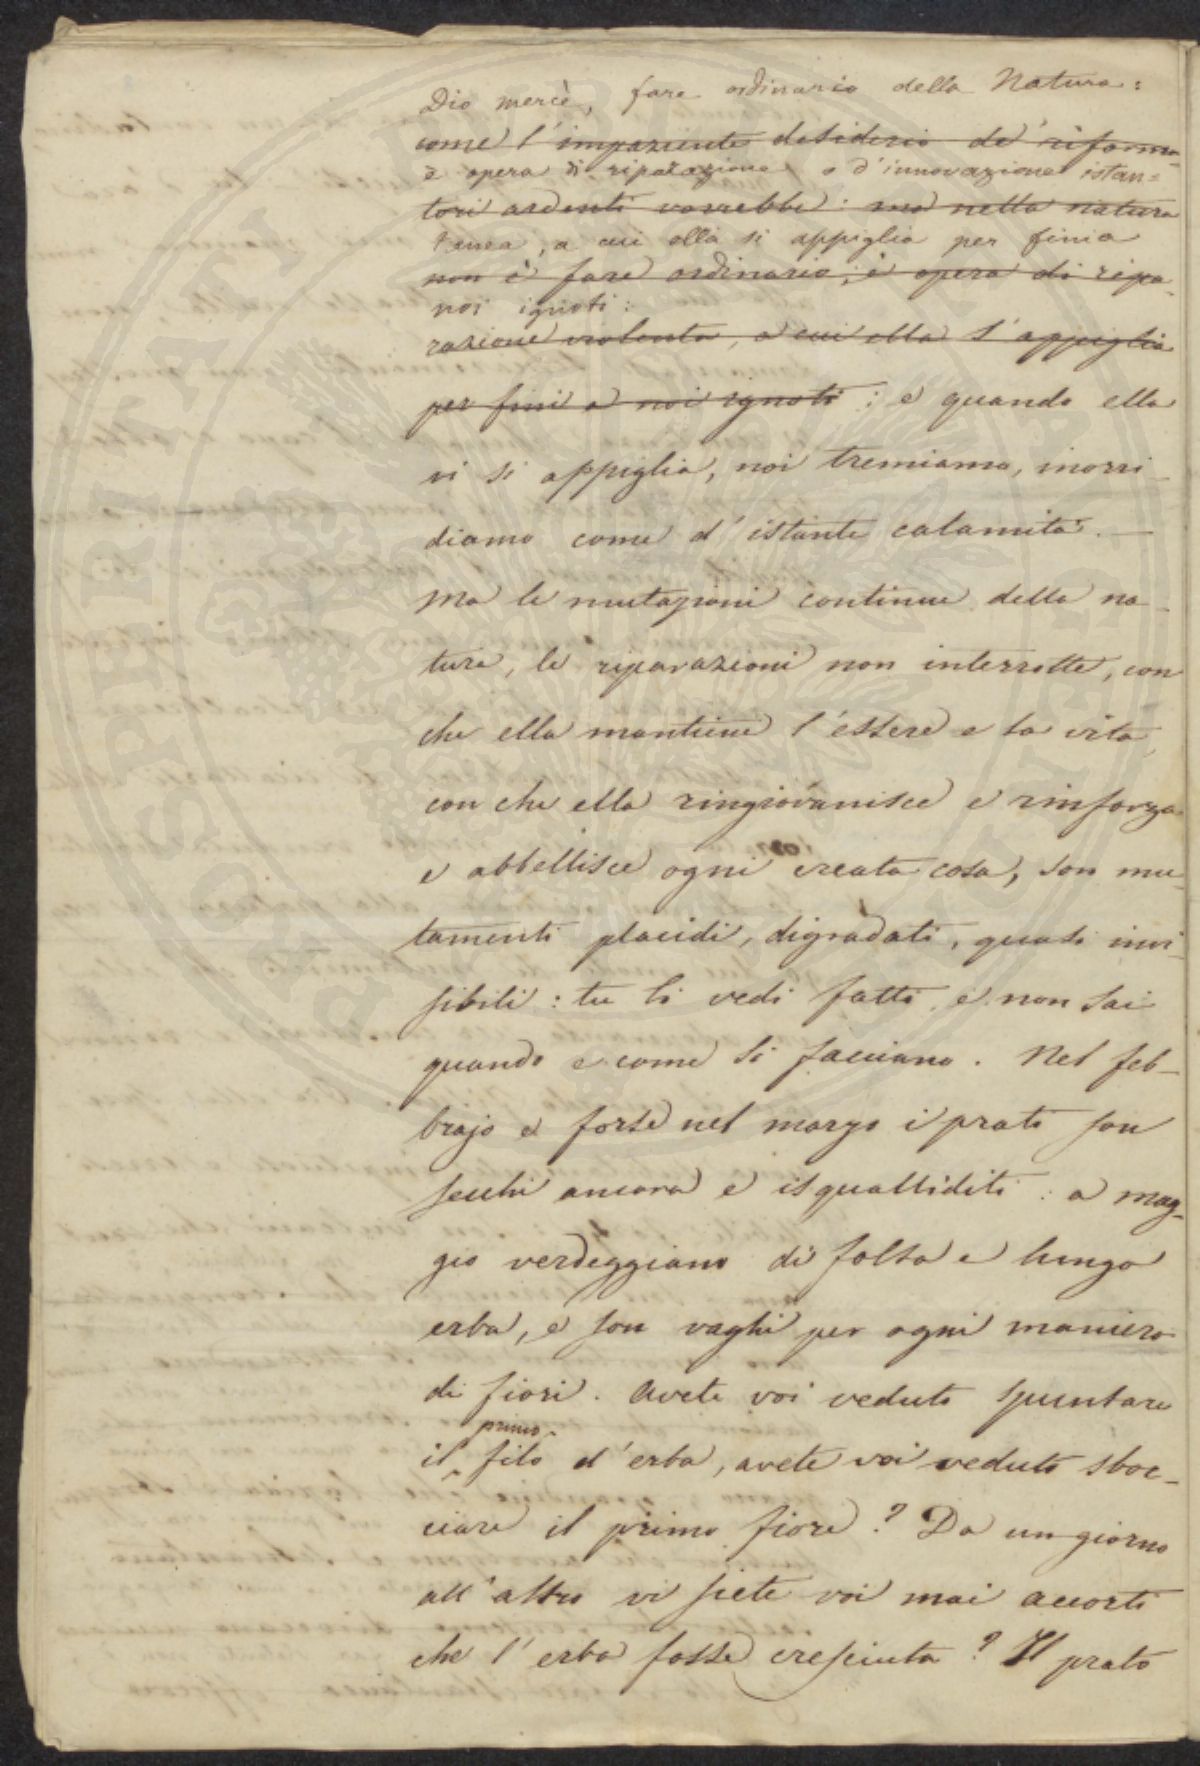 Dio mercè, fare ordinario della Natura:
come l'impaziente desiderio de' riforma-
è opera di riparazione o d'innovazione istan=
tori ardenti vorrebbe: ma nella natura
tanea, a cui ella si appiglia per fini a
non è fare ordinario; è opera di ripa-
noi ignoti:
razione violenta, a cui ella s'appiglia
per fini a noi ignoti: e quando ella
vi si appiglia, noi tremiamo, inorri-
diamo come d'istante calamità. —
Ma le mutazioni continue della na-
tura, le riparazioni non interrotte, con
che ella mantiene l'essere e la vita,
con che ella ringiovanisce e rinforza
e abbellisce ogni creata cosa, son mu-
tamenti placidi, digradati, quasi invi-
sibili: tu li vedi fatti e non sai
quando e come si facciano. Nel feb-
brajo e forse nel marzo i prati son
secchi ancora e isquallidití: a mag-
gio verdeggiano di folta e lunga
erba, e son vaghi per ogni maniera
di fiori. Avete voi veduto spuntare
primo
il filo d'erba, avete voi veduto sboc-
ciare il primo fiore? Da un giorno
all'altro vi siete voi mai accorti
che l'erba fosse cresciuta? Il prato
PROSPERITATI PUBLICAE